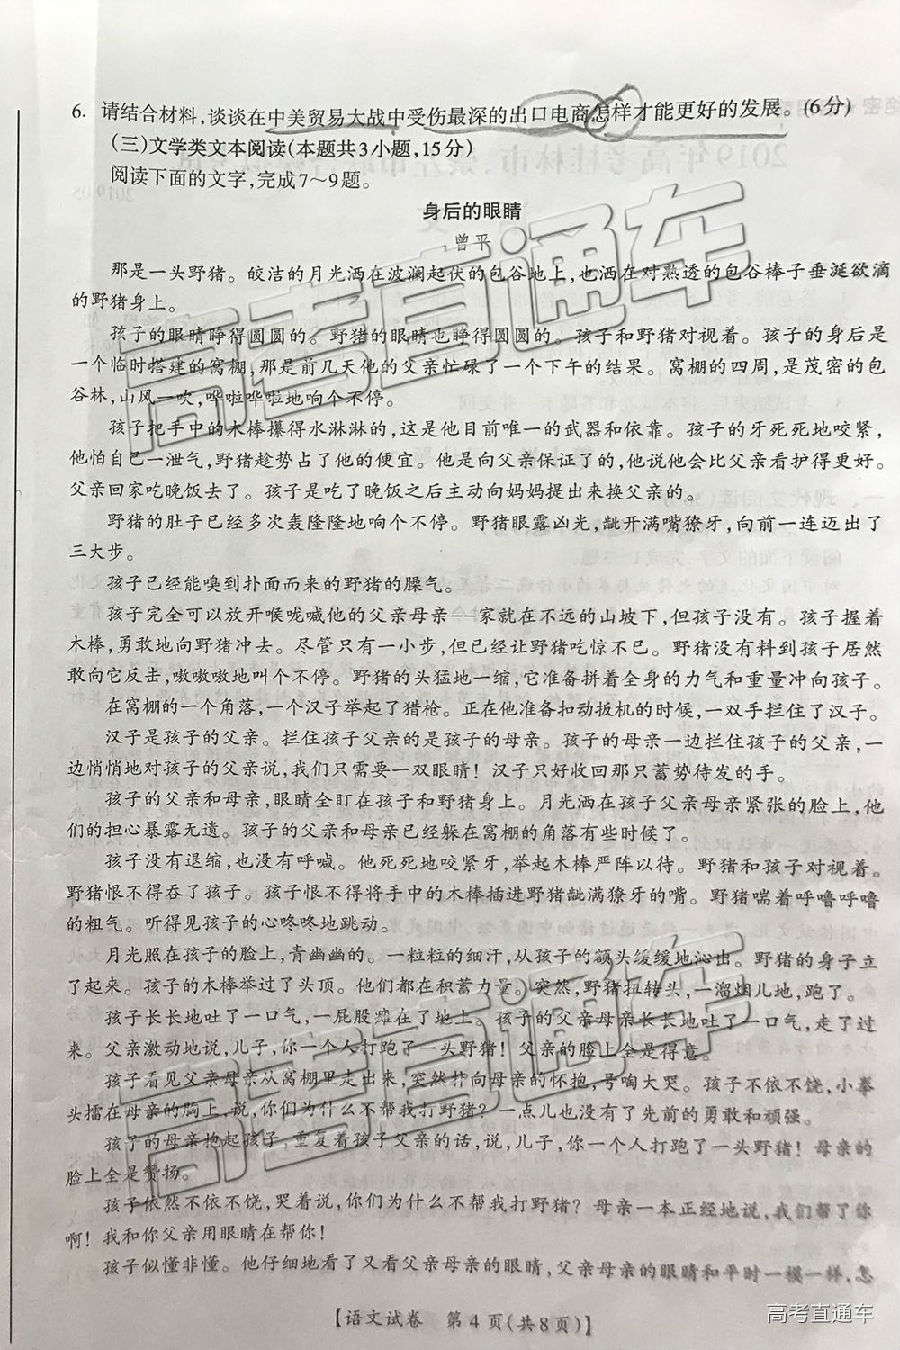 6. 请结合材料,谈谈在中美贸易大战中受伤最深的出口电商怎样才能更好的发展。(6分)
(三)文学类文本阅读(本题共3小题,15分)
阅读下面的文字,完成7～9题。
身后的眼睛
曾平
那是一头野猪。皎洁的月光洒在波澜起伏的包谷地上,也洒在对熟透的包谷棒子垂涎欲滴
的野猪身上。
孩子的眼睛睁得圆圆的。野猪的眼睛也睁得圆圆的。孩子和野猪对视着。孩子的身后是
一个临时搭建的窝棚,那是前几天他的父亲忙碌了一个下午的结果。窝棚的四周,是茂密的包
谷林,山风一吹,哗啦哗啦地响个不停。
孩子把手中的木棒攥得水淋淋的,这是他目前唯一的武器和依靠。孩子的牙死死地咬紧,
他怕自己一泄气,野猪趁势占了他的便宜。他是向父亲保证了的,他说他会比父亲看护得更好。
父亲回家吃晚饭去了。孩子是吃了晚饭之后主动向妈妈提出来换父亲的。
野猪的肚子已经多次轰隆隆地响个不停。野猪眼露凶光,龇开满嘴獠牙,向前一连迈出了
三大步。
孩子已经能嗅到扑面而来的野猪的臊气。
孩子完全可以放开喉咙喊他的父亲母亲——家就在不远的山坡下,但孩子没有。孩子握着
木棒,勇敢地向野猪冲去。尽管只有一小步,但已经让野猪吃惊不已。野猪没有料到孩子居然
敢向它反击,嗷嗷嗷地叫个不停。野猪的头猛地一缩,它准备拼着全身的力气和重量冲向孩子。
在窝棚的一个角落,一个汉子举起了猎枪。正在他准备扣动扳机的时候,一双手拦住了汉子。
汉子是孩子的父亲。拦住孩子父亲的是孩子的母亲。孩子的母亲一边拦住孩子的父亲,一
边悄悄地对孩子的父亲说,我们只需要一双眼睛！汉子只好收回那只蓄势待发的手。
孩子的父亲和母亲,眼睛全盯在孩子和野猪身上。月光洒在孩子父亲母亲紧张的脸上,他
们的担心暴露无遗。孩子的父亲和母亲已经躲在窝棚的角落有些时候了。
孩子没有退缩,也没有呼喊。他死死地咬紧牙,举起木棒严阵以待。野猪和孩子对视着。
野猪恨不得吞了孩子。孩子恨不得将手中的木棒插进野猪龇满獠牙的嘴。野猪喘着呼噜呼噜
的粗气。听得见孩子的心咚咚地跳动。
月光照在孩子的脸上,青幽幽的。一粒粒的细汗,从孩子的额头缓缓地沁出。野猪的身子立
了起来。孩子的木棒举过了头顶。他们都在积蓄力量。突然,野猪扭转头,一溜烟儿地,跑了。
孩子长长地吐了一口气,一屁股瘫在了地上。孩子的父亲母亲长长地吐了一口气,走了过
来。父亲激动地说,儿子,你一个人打跑了一头野猪！父亲的脸上全是得意。
孩子看见父亲母亲从窝棚里走出来,突然扑向母亲的怀抱,号啕大哭。孩子不依不饶,小拳
头擂在母亲的胸上,说,你们为什么不帮我打野猪？一点儿也没有了先前的勇敢和顽强。
孩子的母亲抱起孩子,重复着孩子父亲的话,说,儿子,你一个人打跑了一头野猪！母亲的
脸上全是赞扬。
孩子依然不依不饶,哭着说,你们为什么不帮我打野猪？母亲一本正经地说,我们帮了你
啊！我和你父亲用眼睛在帮你！
孩子似懂非懂。他仔细地看了又看父亲母亲的眼睛,父亲母亲的眼睛和平时一模一样,怎
【语文试卷 第4页(共8页)】
高考直通车
高考直通车
高考直通车